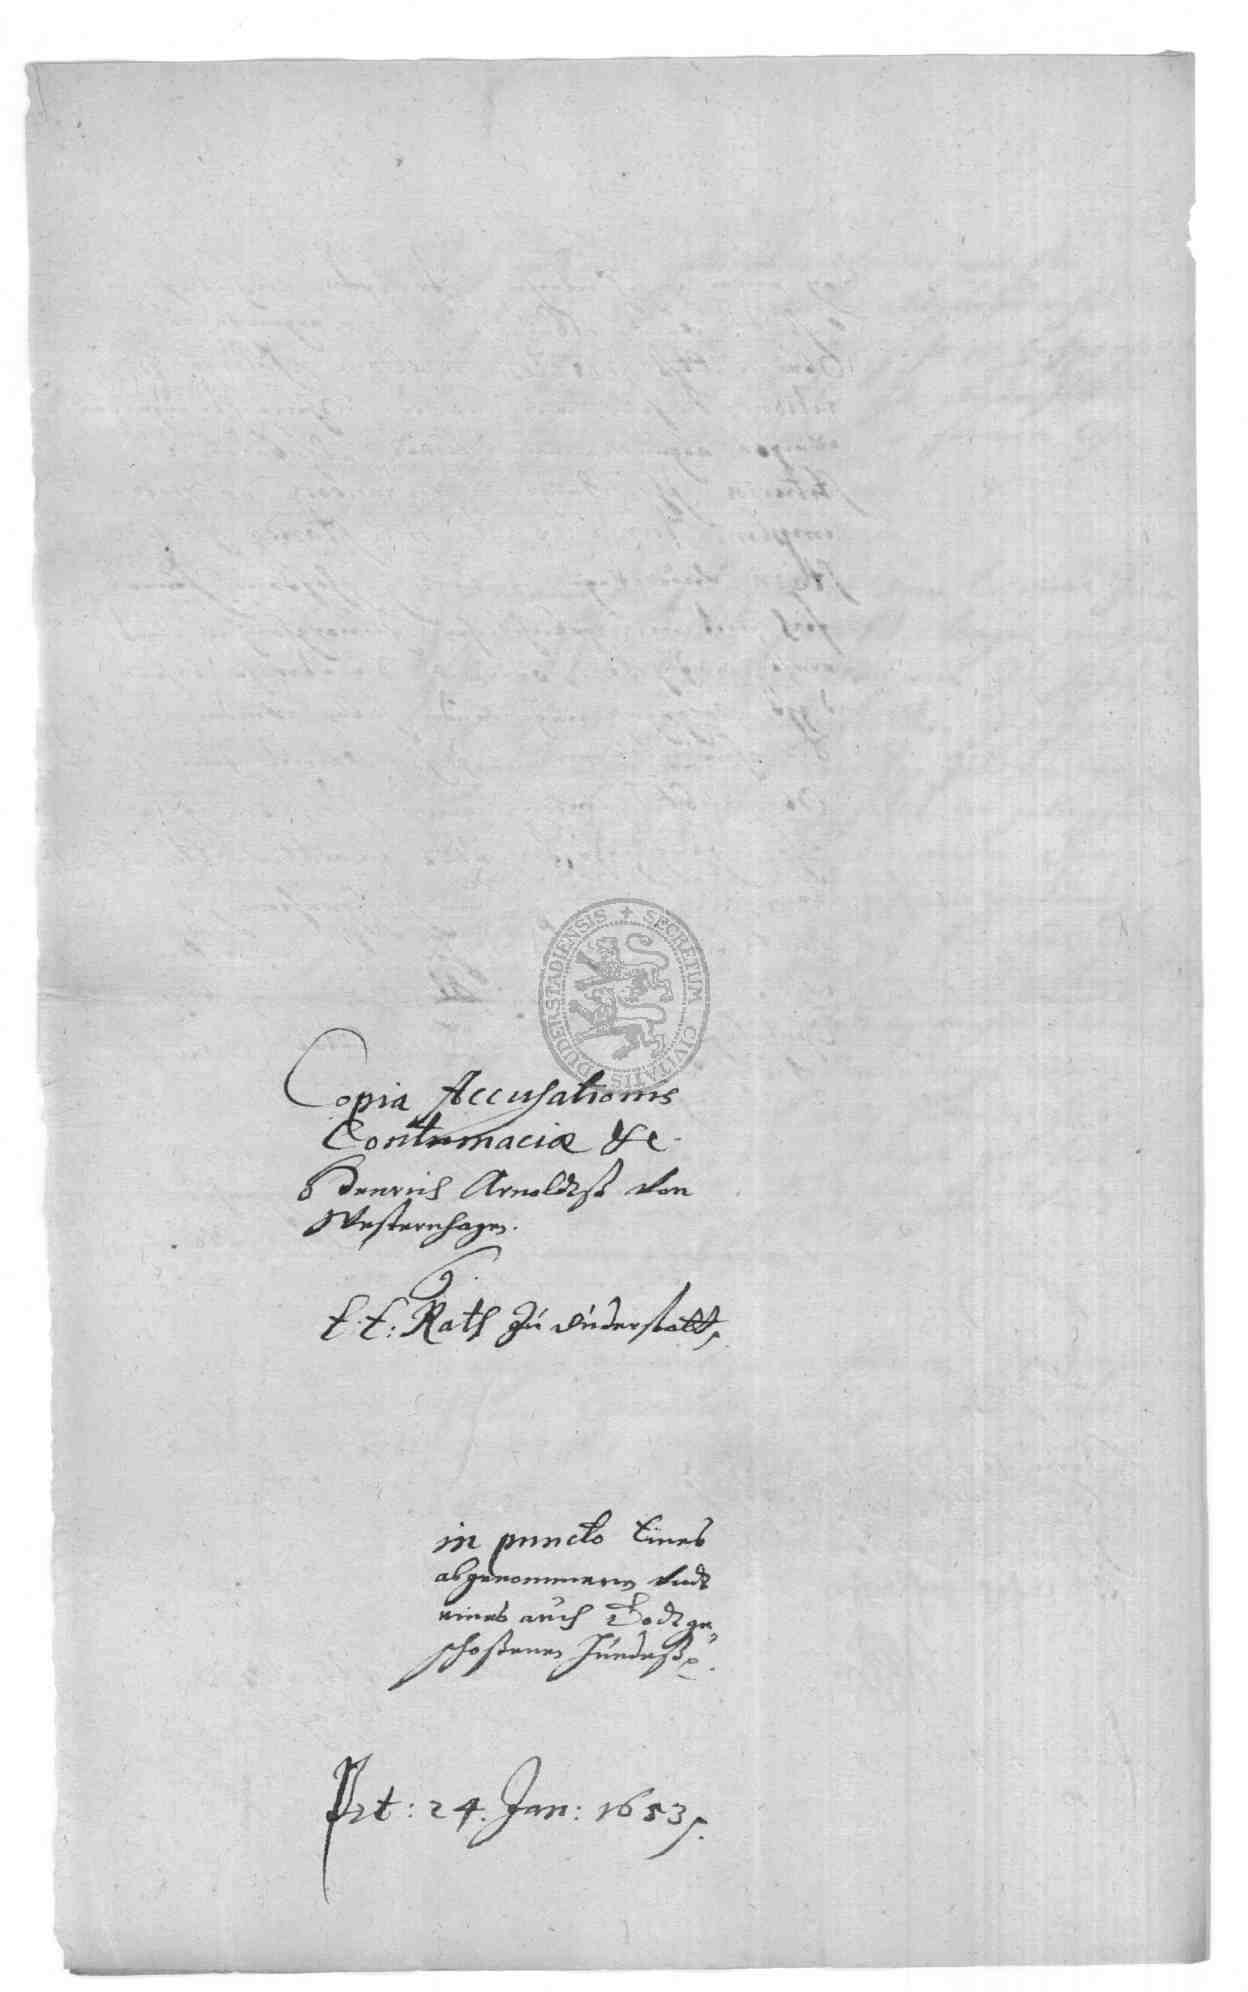 SECRETUM CIVITATIS DUDERSTADIENSIS
Copia Accusationis
Contumaciæ &c.
Henrich Arnoldtß von
Westernhagen.
C.
E. E: Rath zu Duderstatt
in puncto Eines
abgenommenen vndt
eines auch Todtge
schoßenen Hundeß
Prt: 24. Jan: 1653